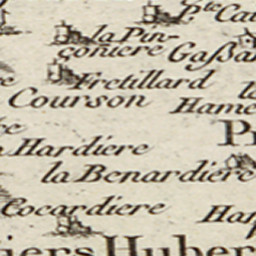 P.te Cau
la Pin-
çoniere Gaßan
Fretillard
Courson Hame
Hardiere
la Benardiere
Cocardiere Hap
iers Huber